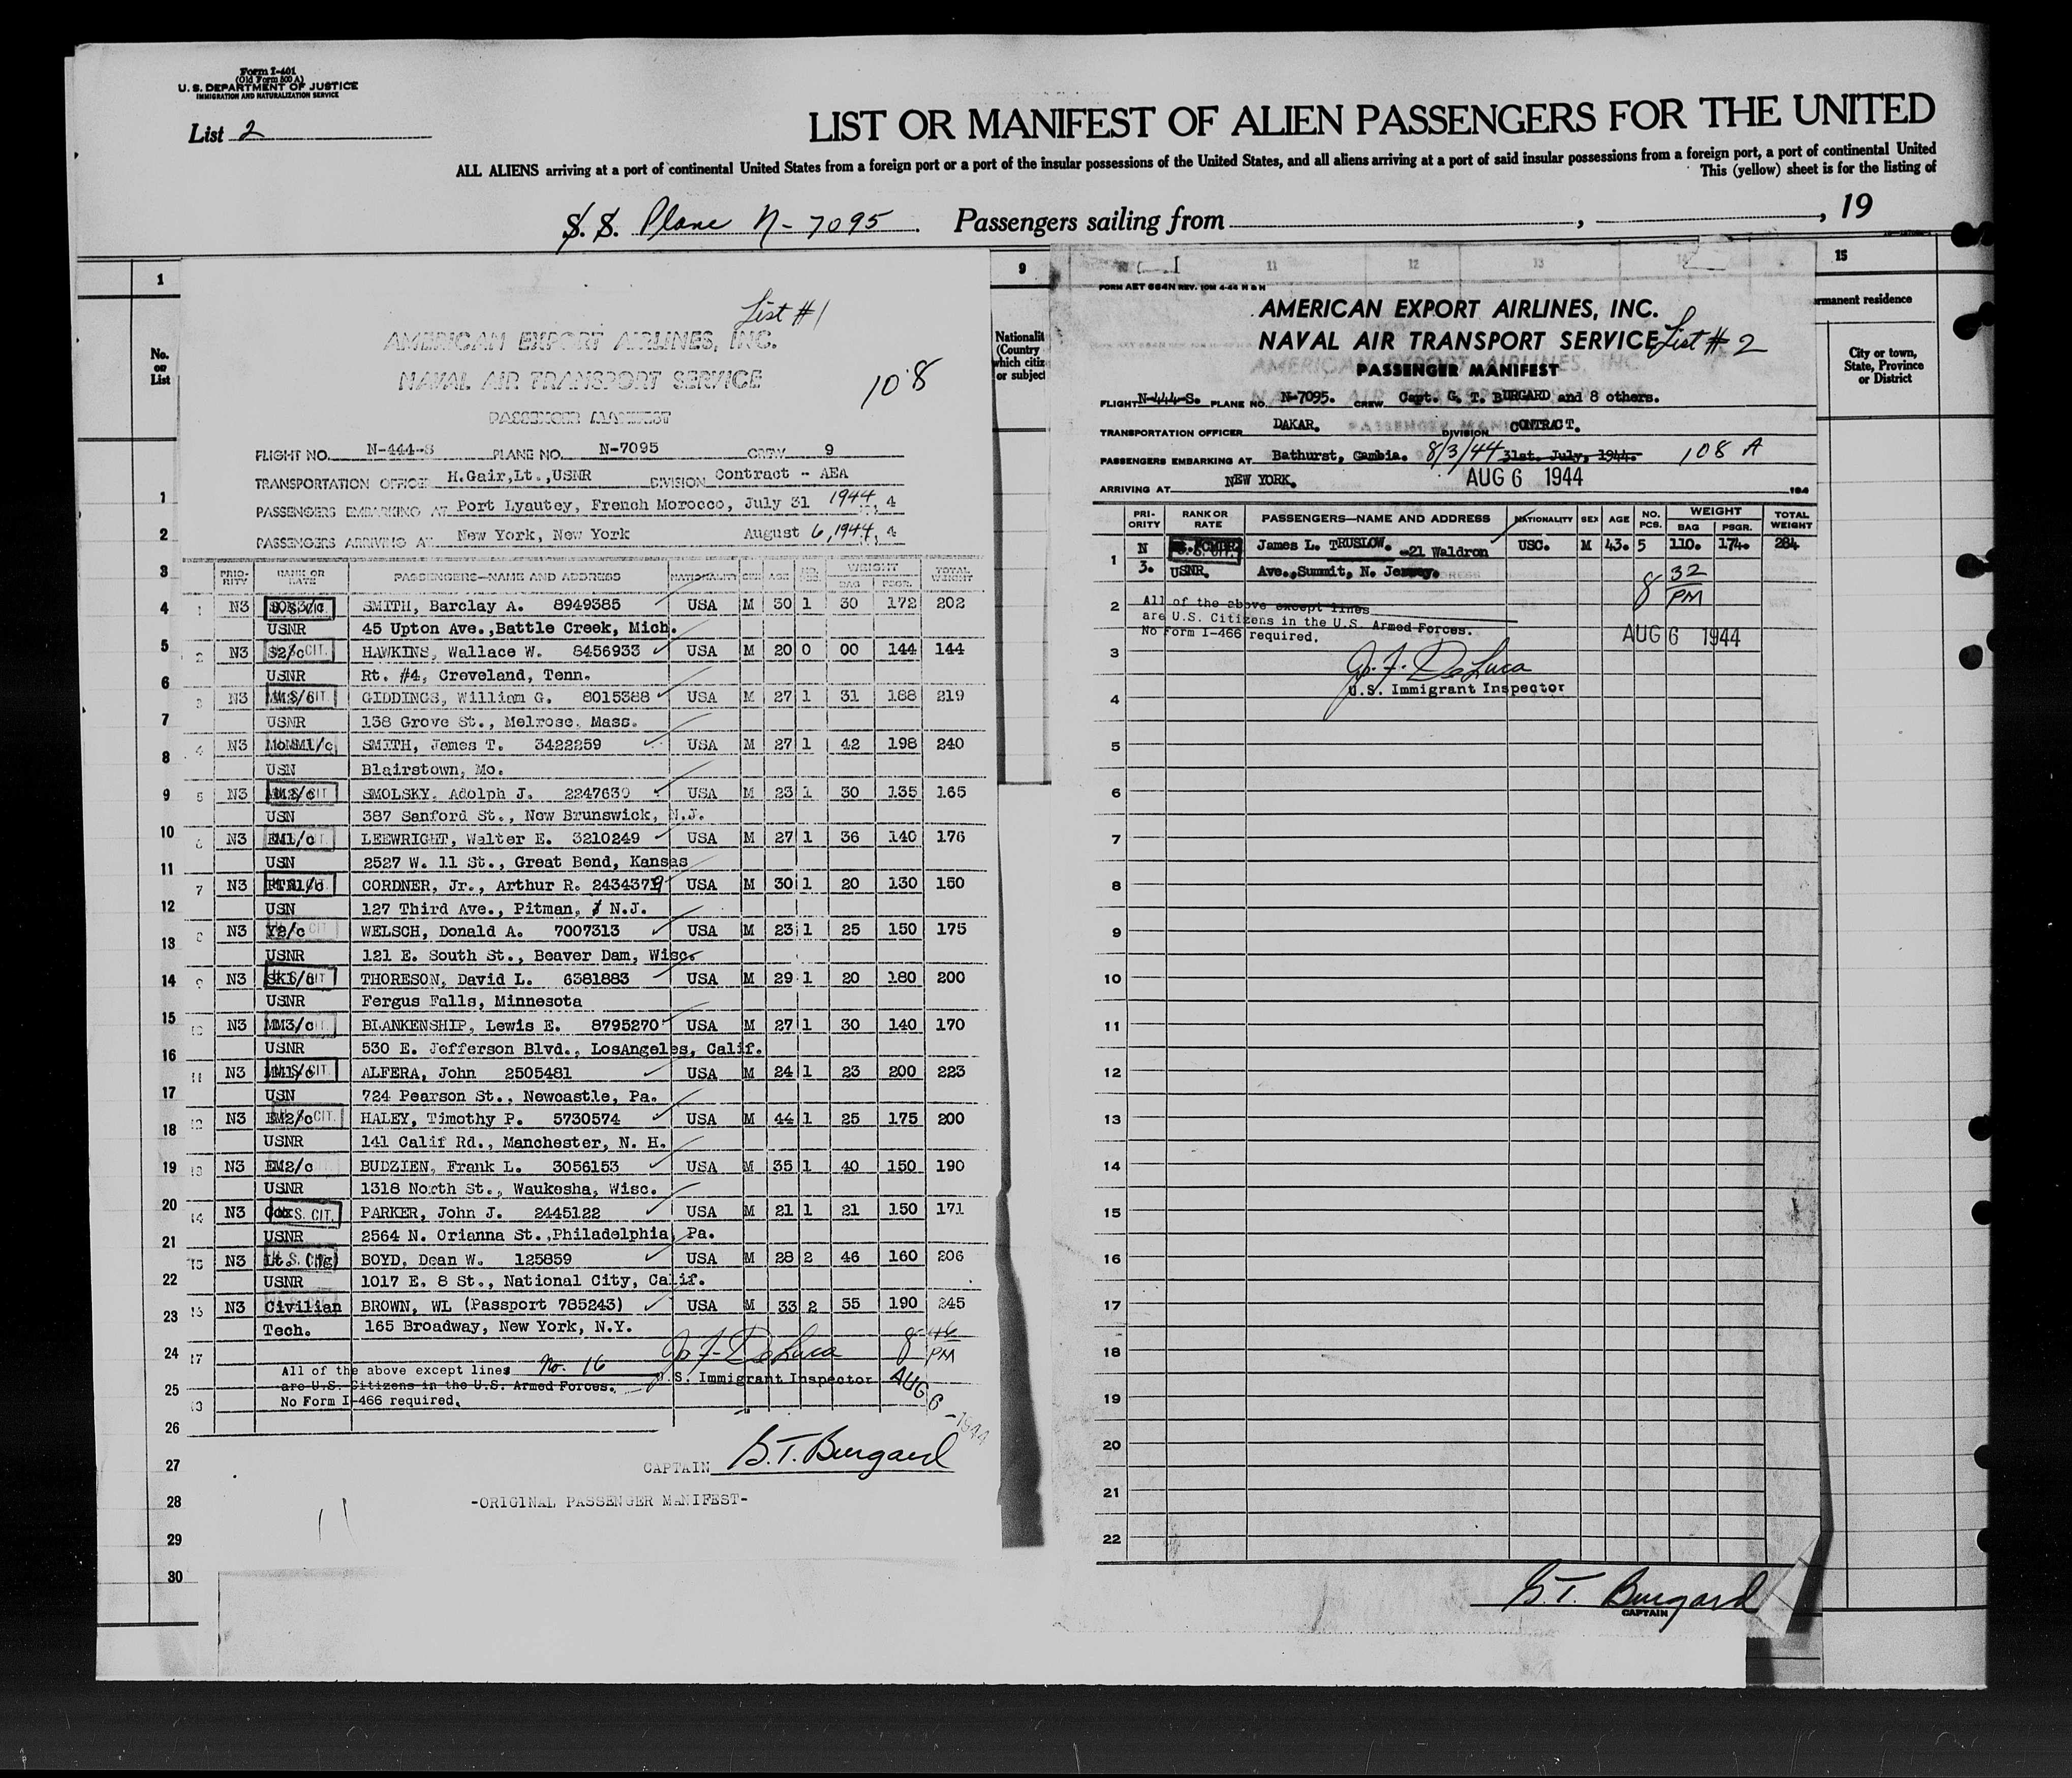 Form I-401
(Old Form 500 A)
U. S. DEPARTMENT OF JUSTICE
IMMIGRATION AND NATURALIZATION SERVICE
List 2
LIST OR MANIFEST OF ALIEN PASSENGERS FOR THE UNITED
ALL ALIENS arriving at a port of continental United States from a foreign port or a port of the insular possessions of the United States, and all aliens arriving at a port of said insular possessions from a foreign port, a port of continental United
This (yellow) sheet is for the listing of
S. S. Plane N-7095. Passengers sailing from , , 19
1
No. on List
List #1
AMERICAN EXPORT AIRLINES, INC.
NAVAL AIR TRANSPORT SERVICE
108
PASSENGER MANIFEST
FLIGHT NO. N-444-S PLANE NO. N-7095 CREW 9
TRANSPORTATION OFFICE H.Gair,Lt.,USNR DIVISION Contract - AEA
PASSENGERS EMBARKING AT Port Lyautey, French Morocco, July 31 1944, 4
PASSENGERS ARRIVING AT New York, New York August 6, 1944, 4
PRIORITY RANK OR RATE PASSENGERS—NAME AND ADDRESS NATIONALITY SEX AGE NO. PCS. WEIGHT BAG PSGR. TOTAL WEIGHT
1 N3 SMITH, Barclay A. 8949385 USA M 30 1 30 172 202
USNR 45 Upton Ave.,Battle Creek, Mich.
2 N3 S2/c CIT. HAWKINS, Wallace W. 8456933 USA M 20 0 00 144 144
USNR Rt. #4, Creveland, Tenn.
3 N3 GIDDINGS, William G. 8015388 USA M 27 1 31 188 219
USNR 138 Grove St., Melrose, Mass.
4 N3 MoMM1/c SMITH, James T. 3422259 USA M 27 1 42 198 240
USN Blairstown, Mo.
5 N3 SMOLSKY, Adolph J. 2247639 USA M 23 1 30 135 165
USN 387 Sanford St., New Brunswick, N.J.
6 N3 EM1/c LEEWRIGHT, Walter E. 3210249 USA M 27 1 36 140 176
USN 2527 W. 11 St., Great Bend, Kansas
7 N3 CORDNER, Jr., Arthur R. 2434379 USA M 30 1 20 130 150
USN 127 Third Ave., Pitman, N.J.
8 N3 Y2/c CIT. WELSCH, Donald A. 7007313 USA M 23 1 25 150 175
USNR 121 E. South St., Beaver Dam, Wisc.
9 N3 THORESON, David L. 6381883 USA M 29 1 20 180 200
USNR Fergus Falls, Minnesota
10 N3 MM3/c BLANKENSHIP, Lewis E. 8795270 USA M 27 1 30 140 170
USNR 530 E. Jefferson Blvd., LosAngeles, Calif.
11 N3 ALFERA, John 2505481 USA M 24 1 23 200 223
USN 724 Pearson St., Newcastle, Pa.
12 N3 EM2/c CIT. HALEY, Timothy P. 5730574 USA M 44 1 25 175 200
USNR 141 Calif Rd., Manchester, N. H.
13 N3 EM2/c BUDZIEN, Frank L. 3056153 USA M 35 1 40 150 190
USNR 1318 North St., Waukesha, Wisc.
14 N3 Cox S. CIT. PARKER, John J. 2445122 USA M 21 1 21 150 171
USNR 2564 N. Orianna St.,Philadelphia, Pa.
15 N3 Lt. (jg) BOYD, Dean W. 125859 USA M 28 2 46 160 206
USNR 1017 E. 8 St., National City, Calif.
16 N3 Civilian BROWN, WL (Passport 785243) USA M 33 2 55 190 245
Tech. 165 Broadway, New York, N.Y.
17
All of the above except lines No. 16
are U.S. Citizens in the U.S. Armed Forces.
No Form I-466 required.
J. F. DeLuca
U.S. Immigrant Inspector
8 46 PM
AUG 6 - 1944
CAPTAIN G. T. Burgard
-ORIGINAL PASSENGER MANIFEST-
1
2
3
4
5
6
7
8
9
10
11
12
13
14
15
16
17
18
19
20
21
22
23
24
25
26
27
28
29
30
9
11 12 13 14
FORM AET 684N REV. 10M 4-44 H & H
AMERICAN EXPORT AIRLINES, INC.
NAVAL AIR TRANSPORT SERVICE List #2
PASSENGER MANIFEST
FLIGHT N-444-S. PLANE NO. N-7095. CREW Capt. G. T. BURGARD and 8 others.
TRANSPORTATION OFFICER DAKAR. DIVISION CONTRACT.
PASSENGERS EMBARKING AT Bathurst, Gambia. 8/3/44 31st. July, 1944. 108 A
ARRIVING AT NEW YORK. AUG 6 1944 194
PRIORITY RANK OR RATE PASSENGERS—NAME AND ADDRESS NATIONALITY SEX AGE NO. PCS. WEIGHT BAG PSGR. TOTAL WEIGHT
1 N James L. TRUSLOW. -21 Waldron USC. M 43. 5 110. 174. 284
3. USNR. Ave.,Summit, N. Jersey.
8 32 PM
2 All of the above except lines
are U.S. Citizens in the U.S. Armed Forces.
No Form I-466 required.
AUG 6 1944
3
J. F. DeLuca
U.S. Immigrant Inspector
4
5
6
7
8
9
10
11
12
13
14
15
16
17
18
19
20
21
22
G. T. Burgard
CAPTAIN
15
City or town, State, Province or District